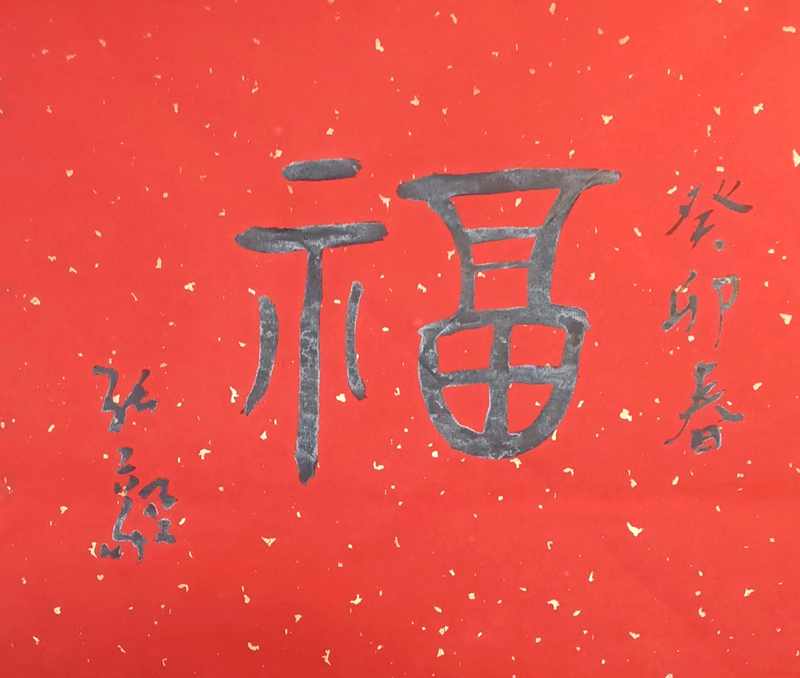 癸卯春
福
张毅